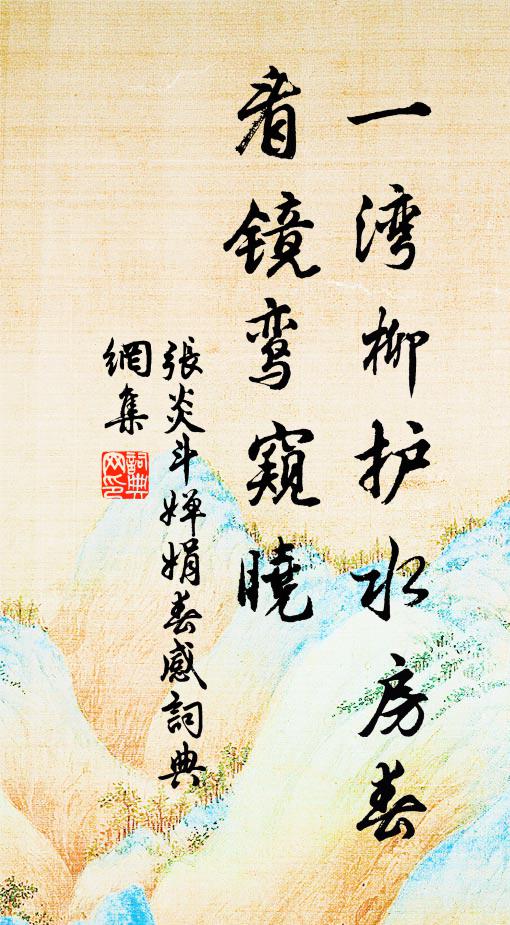 一湾柳护水房春
看镜鸾窥晓
張炎斗婵娟春感詞典
網集
詞典
网印